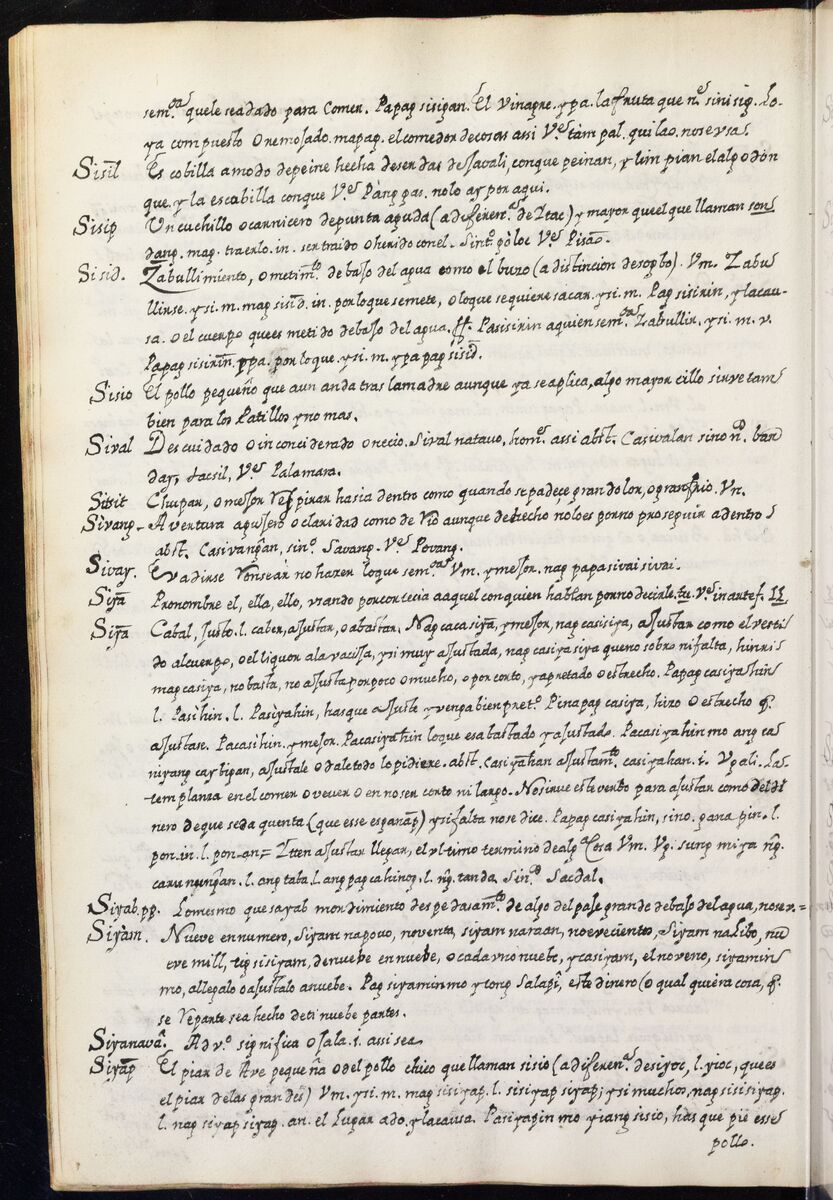 sem.ª quele sea dado para comer. Papag sisigan. El vinagre. y pa. la fruta que n.º sinisig. Lo-
ya compuesto o remojado. mapag. el comedor de cosas assi V.e tampal. quilao. no se vsa.
Sisil Es cobilla a modo de peine hecha de serdas de Javali, con que peinan, y limpian el algodon
que. y la escobilla con que V.e Pàngpas. no lo ay por aqui.
Sisip Un cuchillo o carnicero de punta aguda (a diferen.ª de Itac) y mayor que el que llaman son
dang. mag. traerlo. in. ser traido o herido con el. Sint.º gòloc V.e Pisao.
Sisid. Zabullimiento, o metim.to debajo del agua como el buzo (a distincion de sogbo). Vm. Zabu
llirse. y si. m. mag sisid. in. por loque se mete, o loque se quiere sacar. y si. m. Pag sisirin, y la cau-
sa. o el cuerpo que es metido debajo del agua. ff. Pasisirin a quien sem.ra Zabullir, y si. m. v.
Papag sisirin. ppa. por loque. y si. m. y pa pag sisid.
Sisio El pollo pequeño que aun anda tras la madre aunque ya se aplica, algo mayorcillo sirve tam
bien para los Patillos y no mas.
Sival Descuidado o inconciderado o necio. Sival na tauo, hom.e assi abst. Casivalan sino n.º ban
day, tacsil, V.e Palamara.
Sitsit Chupar, o mejor respirar hasia dentro como quando se padece gran dolor, o gran frio. Vn.
Sivang - Aventura agujero o claridad como de Vid aunque derecho no lo es por no proseguir adentro
abst. Casivangan, sin.º Savang. V.e Povang.
Sivay. Evadirse Ronsear no hazer loque sem.ª Vm. y mejor. nag papasivai sivai.
Siya Pronombre el, ella, ello, vsando por cortecia a aquel con quien hablan por no decirle. tu. V.e in arte f. 11
Siya Cabal, Justo. l. caber, ajustar, o abastar. Nag cacasiya, y mejor, nag casisiya, ajustar como el vesti
do al cuerpo, o el liquor a la vacija, y si muy ajustada, nag casiyasiya que no sobre ni falta, hinri
mag casiya, no basta, no ajusta por poco o mucho, o por corto, y apretado o estrecho. Papag casiyahin
l. Pasihin. l. Pasiyahin, has que ajuste y venga bien pret.º Pinapag casiya, hizo o estrecho q.e
ajustase. Pacasihin. y mejor. Pacasiyahin loque es abastado y ajustado. Pacasiyahin mo ang ca
niyang caybigan, ajustale o dale todo lo pidiere. abst. Casiyahan ajustam.to casiyahan. i. Vgali. La
templanza en el comer o vever o en no ser corto ni largo. No sirve este verbo para ajustar como del di
nero de que se da quenta (que esse es panap) y si falta no se dice. Papag casiyahin, sino. ganapin. l.
pon. in. l. pon-an = Itten ajustar llegar, el vltimo termino de alg.ª Cosa Vm. Vg. sung miya ng.
carunungan. l. ang taba. l. ang pag cahinog. l. ng. tanda. Sin.º Sacdal.
Siyab. pp. Lo mesmo que sayab mordimiento despedasam.to de algo del pese grande debajo del agua, no se v. =
Siyàm. Nueve en numero, Siyam na povo, noventa, siyam na raan, noevecientos, Siyam na Libo, nu
eve mill, tig sisiyam, de nuebe en nuebe, o cada vno nuebe, y casiyam, el noveno, siyamin
mo, allegalo o ajustalo a nuebe. Pag siyamin mo ytong Salapi, este dinero (o qual quiera cosa, q.e
se reparte sea hecho de ti nuebe partes.
Siyanavà. Adv.º significa ojala. i. assi sea.
Siyap El piar de Ave pequeña o del pollo chico que llaman sisio (a diferen.ª de siyoc, l. yioc, que es
el piar de las grandes) Vm. y si. m. mag sisiyap. l. sisiyap siyap; y si muchos, nag sisisiyap.
l. nag siyap siyap. an. el Lugar ado. y la causa. Pasiyapin mo yiang sisio, has que pie esse
pollo.